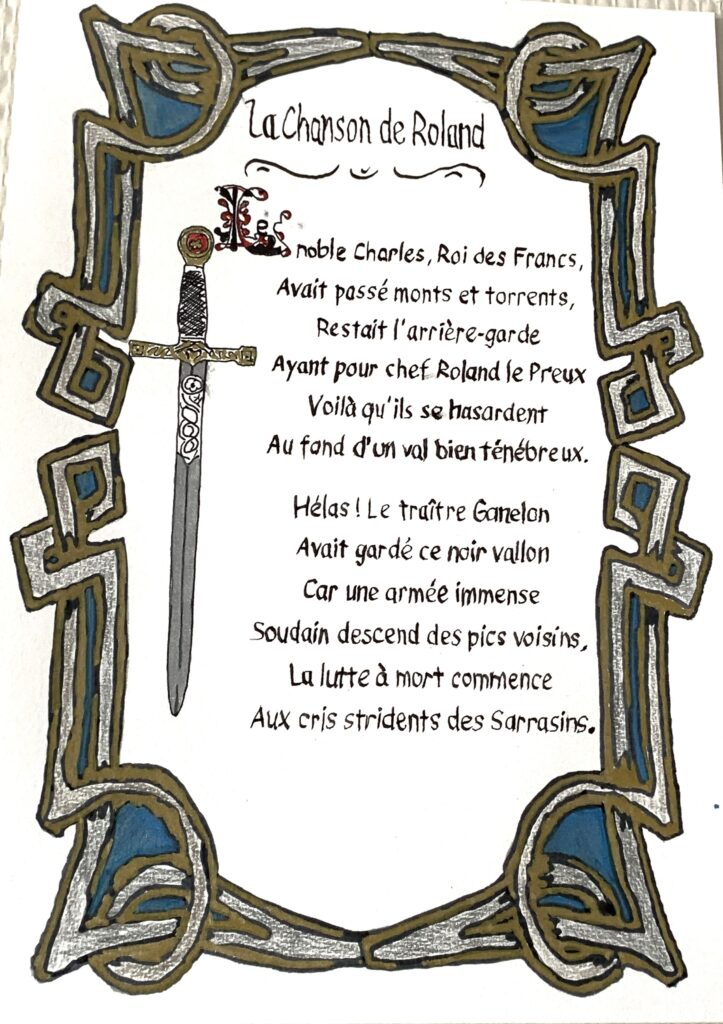 La Chanson de Roland
Le noble Charles, Roi des Francs,
Avait passé monts et torrents,
Restait l'arrière-garde
Ayant pour chef Roland le Preux
Voilà qu'ils se hasardent
Au fond d'un val bien ténébreux.
Hélas ! Le traître Ganelon
Avait gardé ce noir vallon
Car une armée immense
Soudain descend des pics voisins,
La lutte à mort commence
Aux cris stridents des Sarrasins.